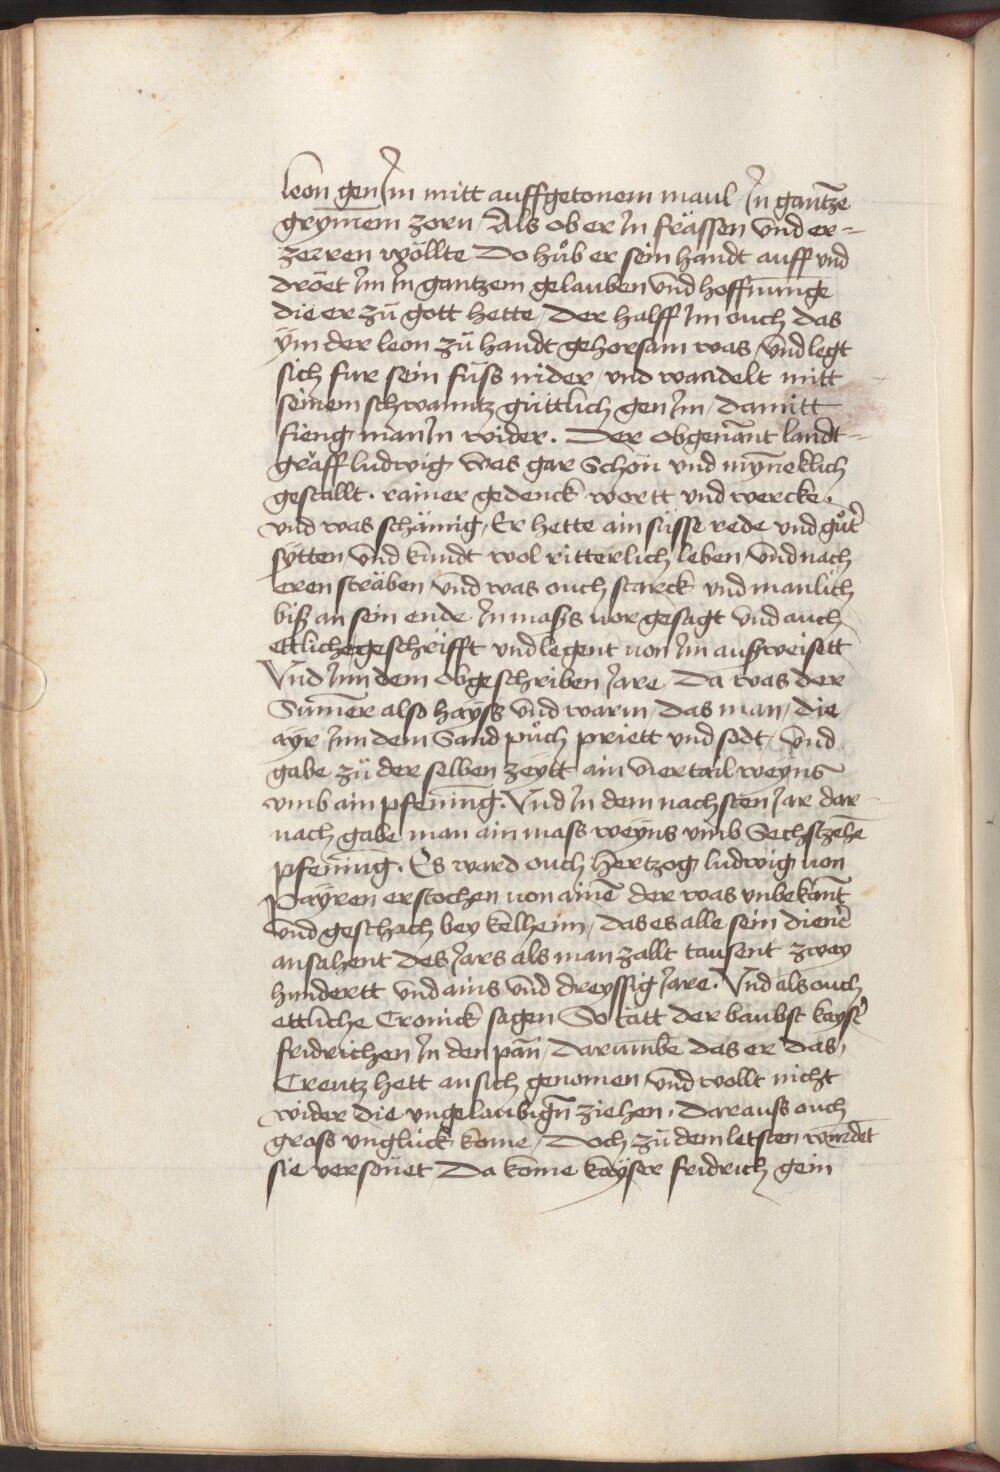 leon gen Im mitt auffgetonem maul In gantze
grymem zorn / Als ob er In frässen vnd er=
zerren wöllte Do hůb er sein handt auff vnd
dröet Im In gantzem gelauben vnd hoffnunge
die er zü gott hette / Der halff Im ouch das
ÿm der leon zü handt gehorsam was / vnd legt
sich fur sein füss nider / vnd wandelt mitt
seinem schwanntz güttlich gen Im / damitt
fieng man In wider . Der obgenant landt=
gräff ludwig was gar schön vnd mÿneklich
gestallt . rainer gedenck wortt vnd wercke .
vnd was schämig / Er hette ain süsse rede vnd gůt
sÿtten / vnd kundt wol ritterlich leben / vnd nach
eren sträben / vnd was ouch starck vnd manlich
biß an sein ende In mass vor gesagt vnd auch
ettliche geschrifft vnd legent von Im außweisett
Vnd Inn dem obgeschriben Jare / Da was der
Sumer also hayss vnd warm / das man / die
ayr Inn dem Sand půch priett vnd sodt / vnd
gabe zü der selben zeytt ain viertail weyns
vmb ain pfening . Vnd In dem nachsten Jar dar=
nach gabe man ain mass weyns vmb Sechszehe
pfening . Es ward ouch hertzog ludwig von
Payren erstochen von aine der was vnbekant
vnd geschach bey kelheim / das es alle sein diener
ansahent des Jars als man zallt tausent zwey
hundertt vnd ains vnd dreyssig Jare . Vnd als ouch
ettliche Cronick sagen So tätt der bäubst kayser
fridrichen In den pan / darumbe das er das
Creutz hett an sich genomen / vnd wollt nicht
wider die vngelaubign ziehen . darauss ouch
gross vnglück kome / Doch zü dem letsten wurdet
sie versönet / Da kome kaÿser fridrich gein